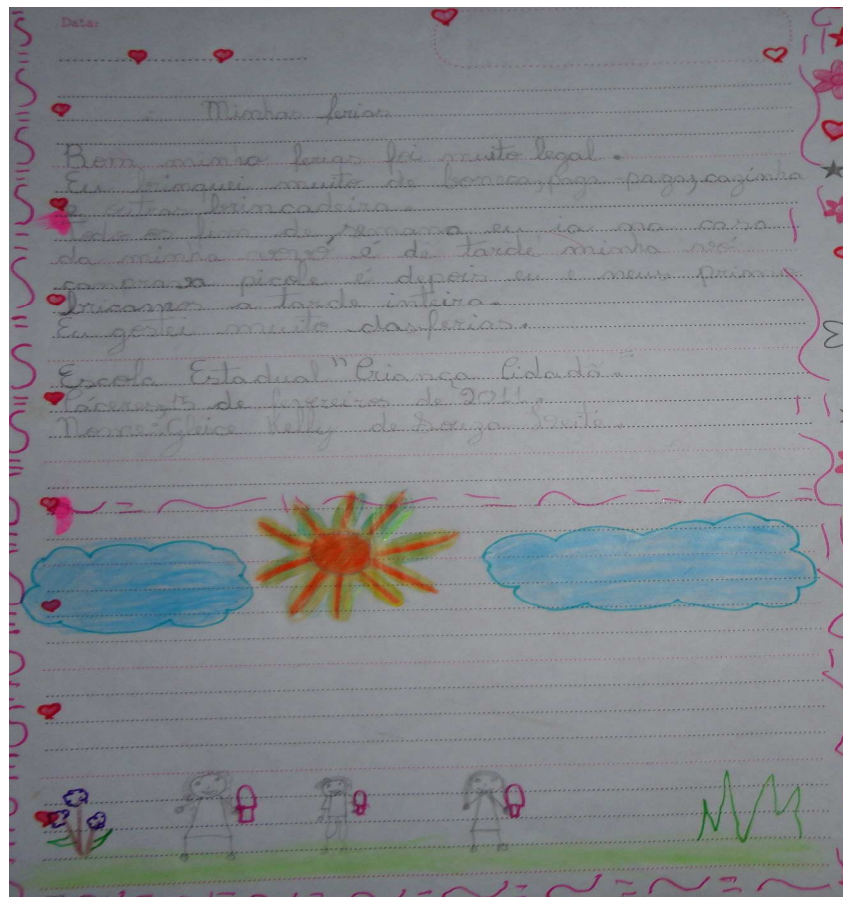 Data:
Minhas ferias
Bom, minha ferias foi muito legal.
Eu brinquei muito de boneca, pega-pega, cozinha
e outras brincadeira.
Todo os fim de semana eu ia na casa
da minha vovó é de tarde minha vó
comprava picole é depois eu e meus primo
bricamos a tarde inteira.
Eu gostei muito das ferias.
Escola Estadual "Criança Cidadã."
Cáceres, 15 de fevereiros de 2011.
Nome: Gleice Kelly de Souza